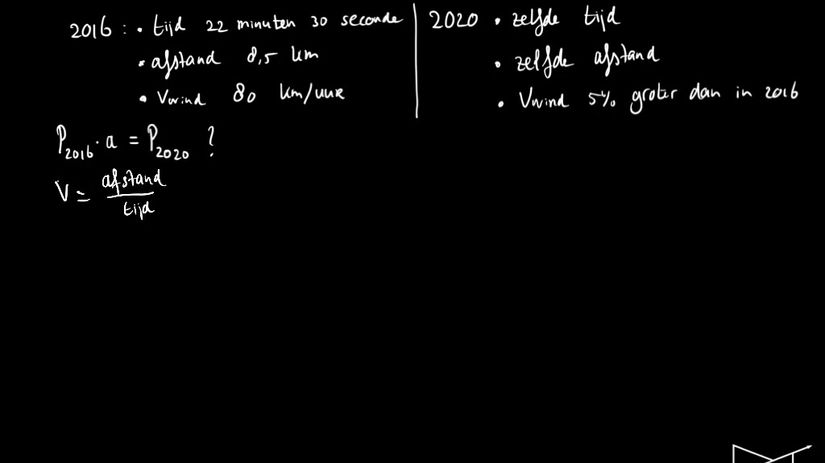 2016 : • tijd 22 minuten 30 seconde
• afstand 8,5 km
• Vwind 80 km/uur
2020 • zelfde tijd
• zelfde afstand
• Vwind 5% groter dan in 2016
P2016 · a = P2020 ?
V = afstand
tijd